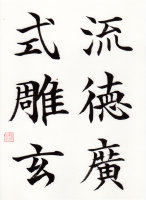 流德廣
式雕玄